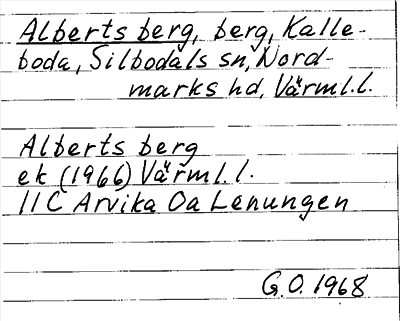 Alberts berg, berg, Kalle-
boda, Silbodals sn, Nord-
marks hd, Värml.l.
Alberts berg
ek (1966) Värml.l.
11C Arvika Oa Lenungen
G.O. 1968